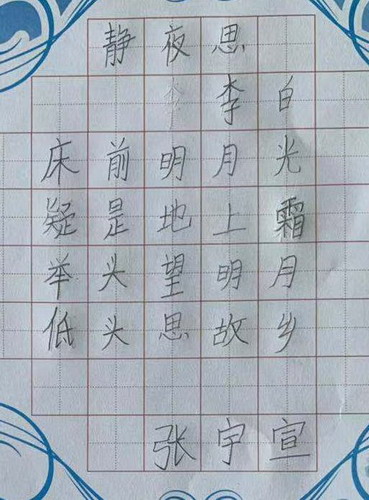 静夜思
李白
床前明月光
疑是地上霜
举头望明月
低头思故乡
张宇宣